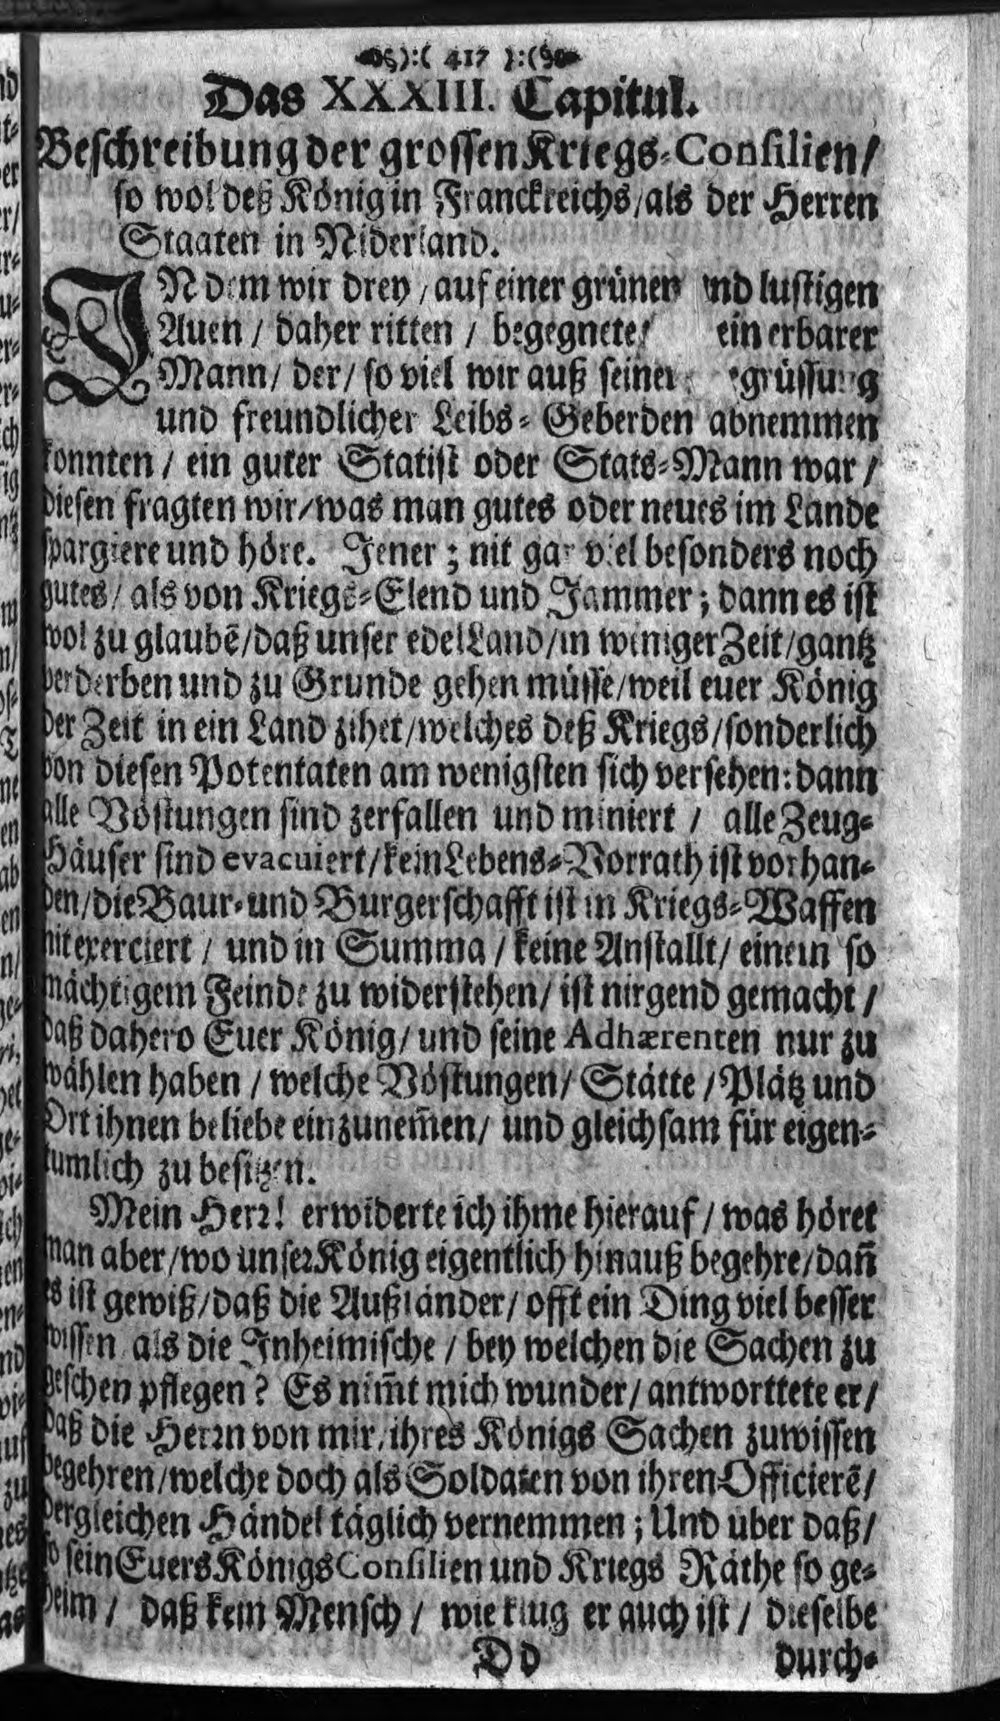 ):( 417 ):(
Das XXXIII. Capitul.
Beschreibung der grossen Kriegs-Consilien/
so wol deß König in Franckreichs/als der Herren
Staaten in Niderland.
INdem wir drey / auf einer grünen und lustigen
Auen / daher ritten / begegnete ein erbarer
Mann/ der/ so viel wir auß seiner
und freundlicher Leibs-Geberden abnemmen
konnten / ein guter Statist oder Stats-Mann war /
diesen fragten wir/was man gutes oder neues im Lande
spargiere und höre. Jener ; nit gar viel besonders noch
gutes / als von Kriegs-Elend und Jammer ; dann es ist
wol zu glaubē/daß unser edel Land/in weniger Zeit/gantz
verderben und zu Grunde gehen müsse/weil euer König
der Zeit in ein Land zihet/welches deß Kriegs/sonderlich
von diesen Potentaten am wenigsten sich versehen: dann
alle Vöstungen sind zerfallen und miniert / alle Zeug-
Häuser sind evacuiert/kein Lebens-Vorrath ist vorhan-
den/die Baur-und Burgerschafft ist in Kriegs-Waffen
nit exerciert / und in Summa / keine Anstallt/ einem so
mächtigem Feinde zu widerstehen/ ist nirgend gemacht /
daß dahero Euer König/ und seine Adhærenten nur zu
wählen haben / welche Vöstungen/ Stätte / Plätz und
Ort ihnen beliebe einzunem̄en/ und gleichsam für eigen-
tumlich zu besitzen.
Mein Herr! erwiderte ich ihme hierauf / was höret
man aber/wo unser König eigentlich hinauß begehre/dañ
es ist gewiß/daß die Außländer/ offt ein Ding viel besser
wissen als die Inheimische / bey welchen die Sachen zu
geschen pflegen? Es nim̄t mich wunder/ antworttete er/
daß die Herrn von mir, ihres Königs Sachen zuwissen
begehren/welche doch als Soldaten von ihren Officierē/
dergleichen Händel täglich vernemmen ; Und über daß/
so sein Euers Königs Consilien und Kriegs Räthe so ge-
heim / daß kein Mensch / wie klug er auch ist / dieselbe
Dd durch-